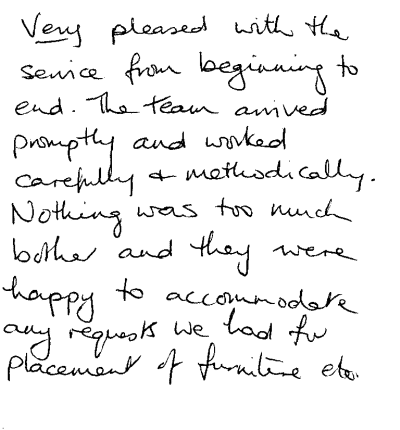 Very pleased with the
service from beginning to
end. The team arrived
promptly and worked
carefully + methodically.
Nothing was too much
bother and they were
happy to accommodate
any requests we had for
placement of furniture etc.